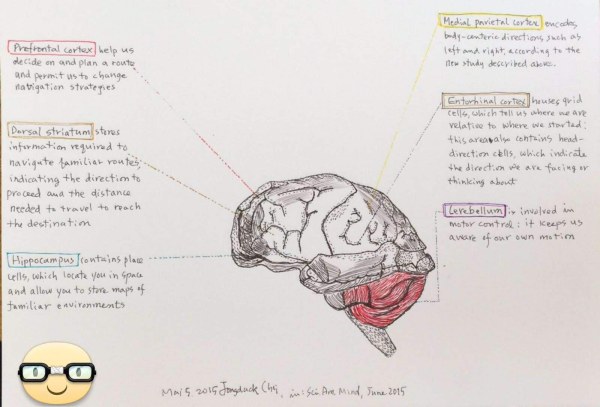 Prefrontal cortex help us
decide on and plan a route
and permit us to change
navigation strategies
Dorsal striatum stores
information required to
navigate familiar routes,
indicating the direction to
proceed and the distance
needed to travel to reach
the destination
Hippocampus contains place
cells, which locate you in space
and allow you to store maps of
familiar environments
Medial parietal cortex encodes
body-centric directions, such as
left and right, according to the
new study described above.
Entorhinal cortex houses grid
cells, which tell us where we are
relative to where we started;
this area also contains head-
direction cells, which indicate
the direction we are facing or
thinking about
Cerebellum is involved in
motor control; it keeps us
aware of our own motion
May 5 2015 in: Sci Am. Mind, June 2015